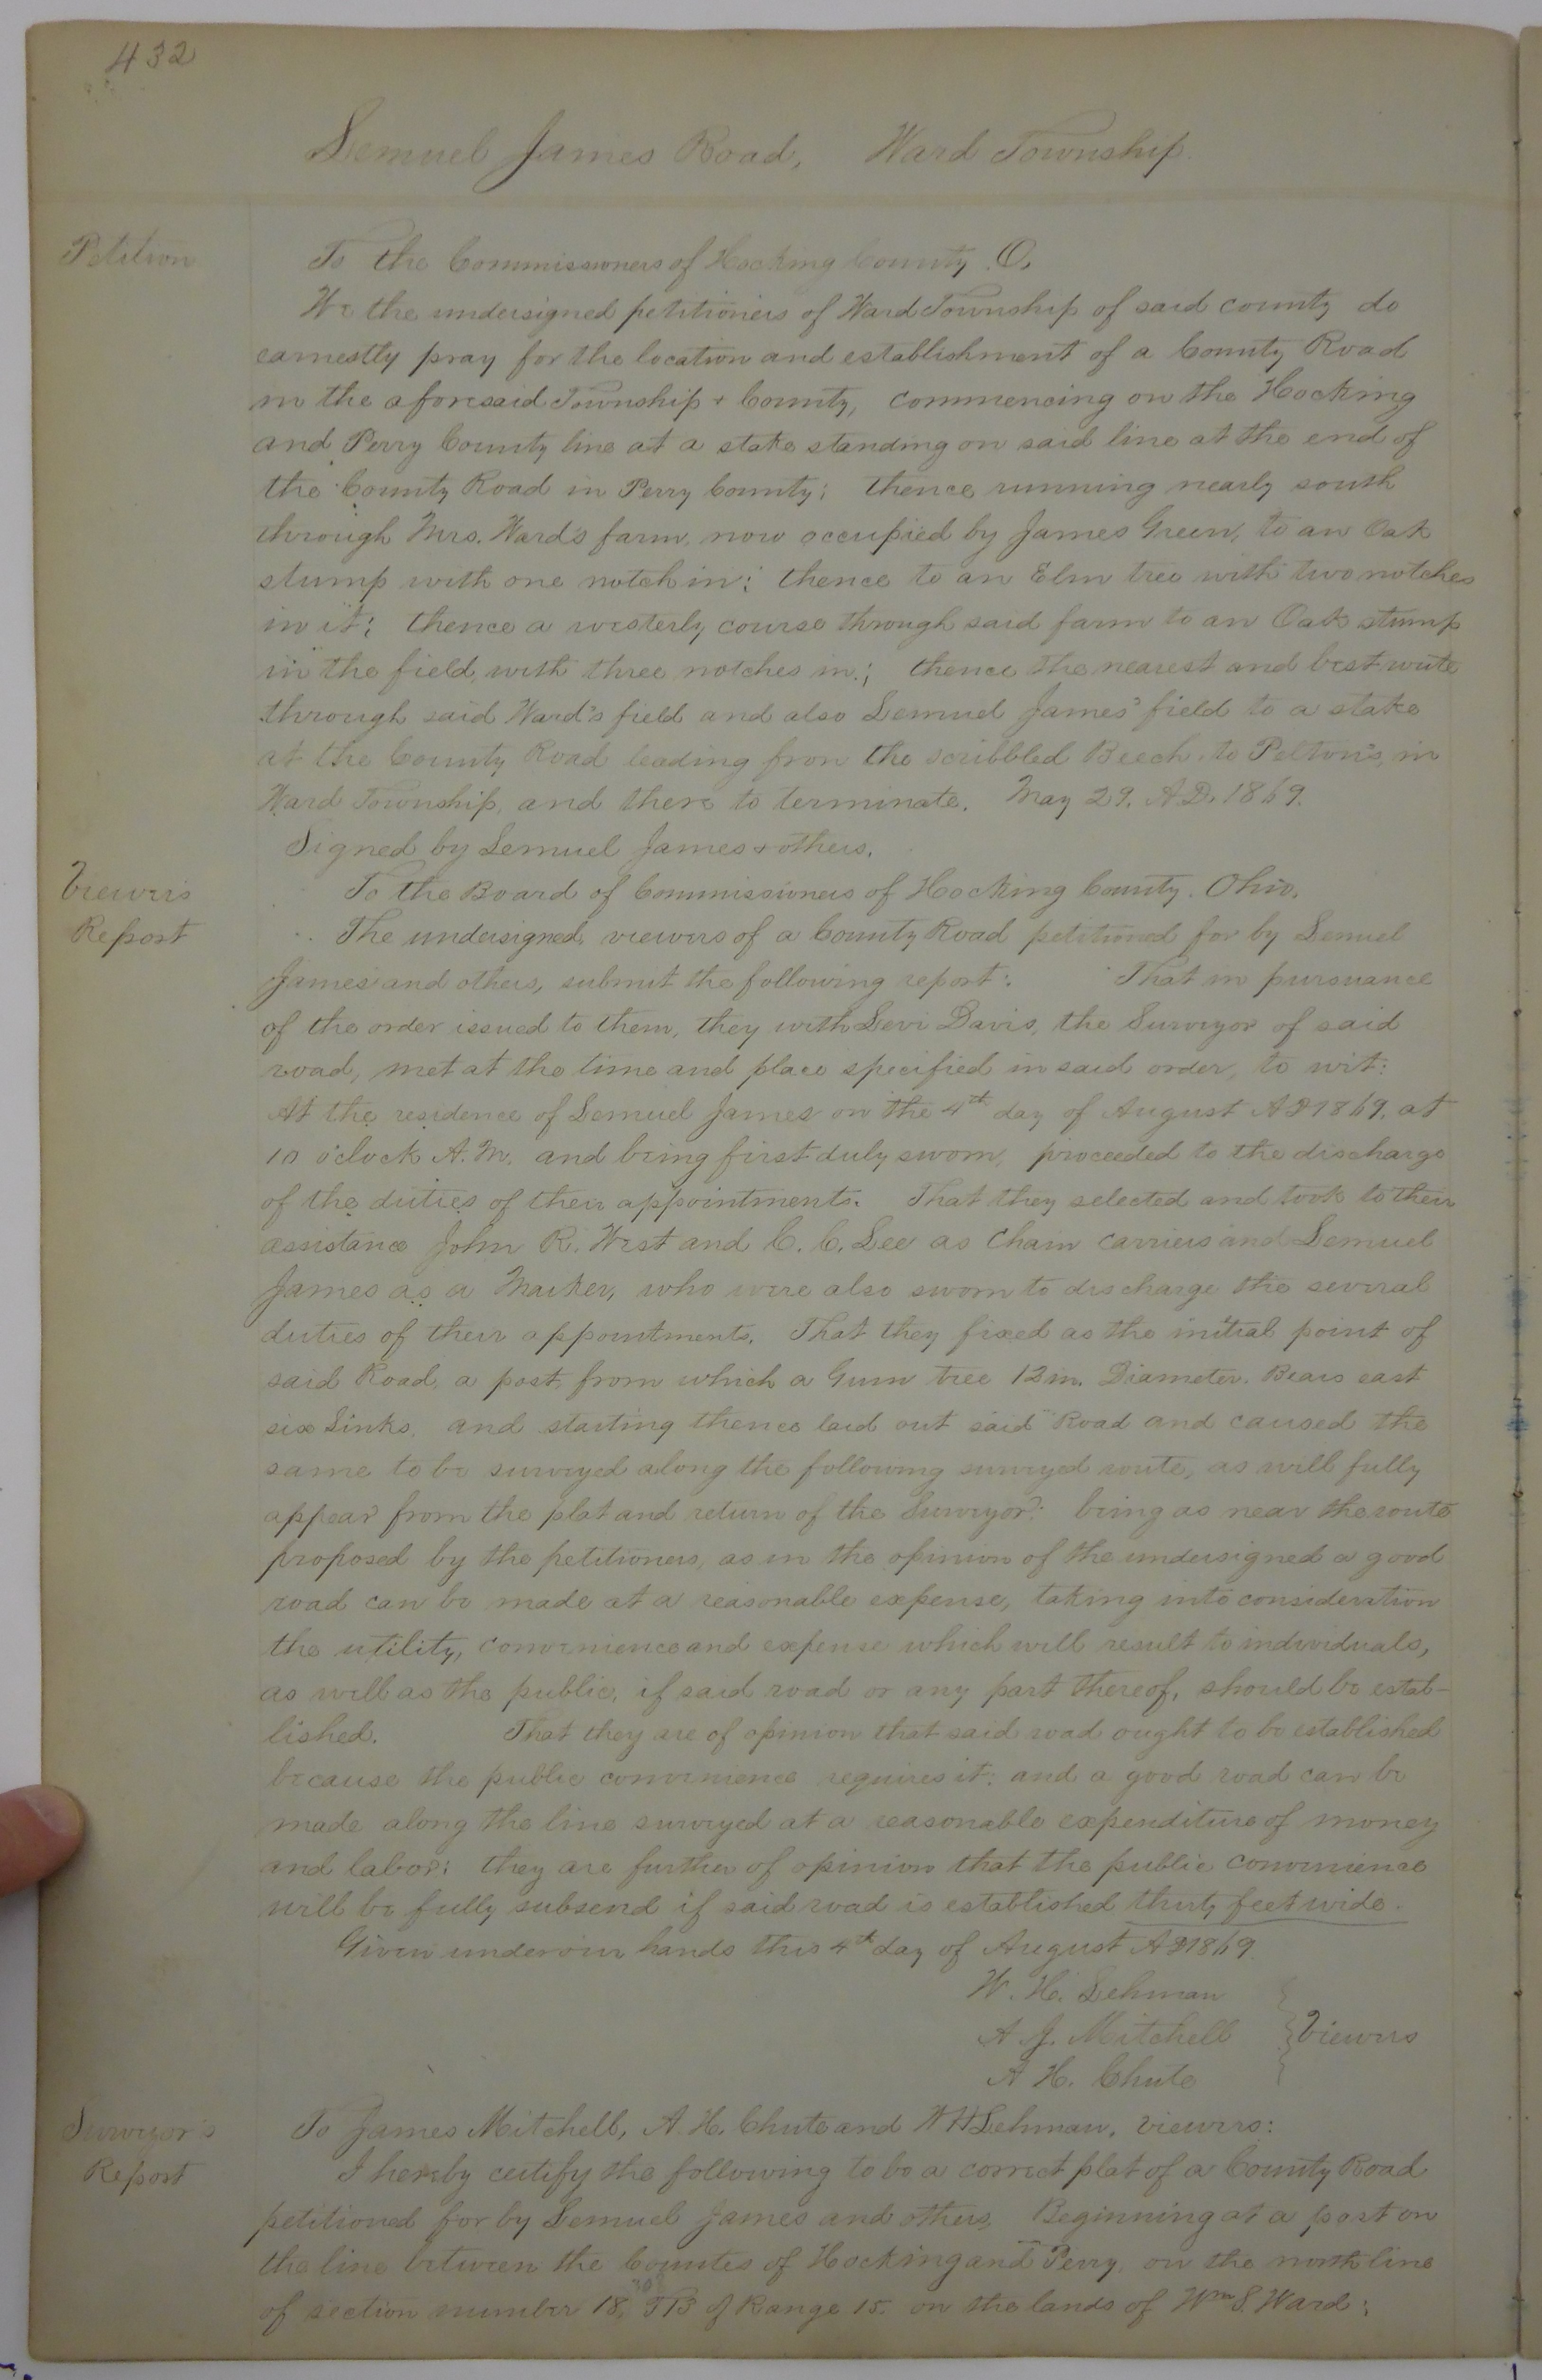 432
Lemuel James Road, Ward Township.
Petition
To the Commissioners of Hocking County O,
We the undersigned petitioners of Ward Township of said county do
earnestly pray for the location and establishment of a County Road
in the aforesaid Township + County, commencing on the Hocking
and Perry County line at a stake standing on said line at the end of
the County Road in Perry County; thence running nearly south
through Mrs. Ward's farm, now occupied by James Green, to an Oak
stump with one notch in; thence to an Elm tree with two notches
in it; thence a westerly course through said farm to an Oak stump
in the field, with three notches in; thence the nearest and best route
through said Ward's field and also Lemuel James' field to a stake
at the County Road leading from the scribbled Beech, to Pelton's, in
Ward Township, and there to terminate. May 29, A.D. 1869.
Signed by Lemuel James + others.
Viewers
Report
To the Board of Commissioners of Hocking County. Ohio.
The undersigned, viewers of a County Road petitioned for by Lemuel
James and others, submit the following report: That in pursuance
of the order issued to them, they with Levi Davis, the Surveyor of said
road, met at the time and place specified in said order, to wit:
At the residence of Lemuel James on the 4th day of August AD 1869, at
10 o'clock A.M. and being first duly sworn, proceeded to the discharge
of the duties of their appointments. That they selected and took to their
assistance John R. West and C. C. Lee as Chain carriers and Lemuel
James as a Marker, who were also sworn to discharge the several
duties of their appointments. That they fixed as the initial point of
said Road, a post, from which a Gum tree 12 in. Diameter. Bears east
six Links, and starting thence laid out said Road and caused the
same to be surveyed along the following surveyed route, as will fully
appear from the plat and return of the Surveyor: being as near the route
proposed by the petitioners, as in the opinion of the undersigned a good
road can be made at a reasonable expense, taking into consideration
the utility, convenience and expense which will result to individuals,
as well as the public, if said road or any part thereof, should be estab-
lished. That they are of opinion that said road ought to be established
because the public convenience requires it: and a good road can be
made along the line surveyed at a reasonable expenditure of money
and labor; they are further of opinion that the public convenience
will be fully subsend if said road is established thirty feet wide.
Given under our hands this 4th day of August AD 1869
W. H. Lehman
A J. Mitchell } Viewers
A H. Chute
Surveyor's
Report
To James Mitchell, A. H. Chute and W H Lehman, viewers:
I hereby certify the following to be a correct plat of a County Road
petitioned for by Lemuel James and others, Beginning at a post on
the line between the Counties of Hocking and Perry, on the north line
of section number 18, T13 of Range 15. on the lands of Wm S. Ward;